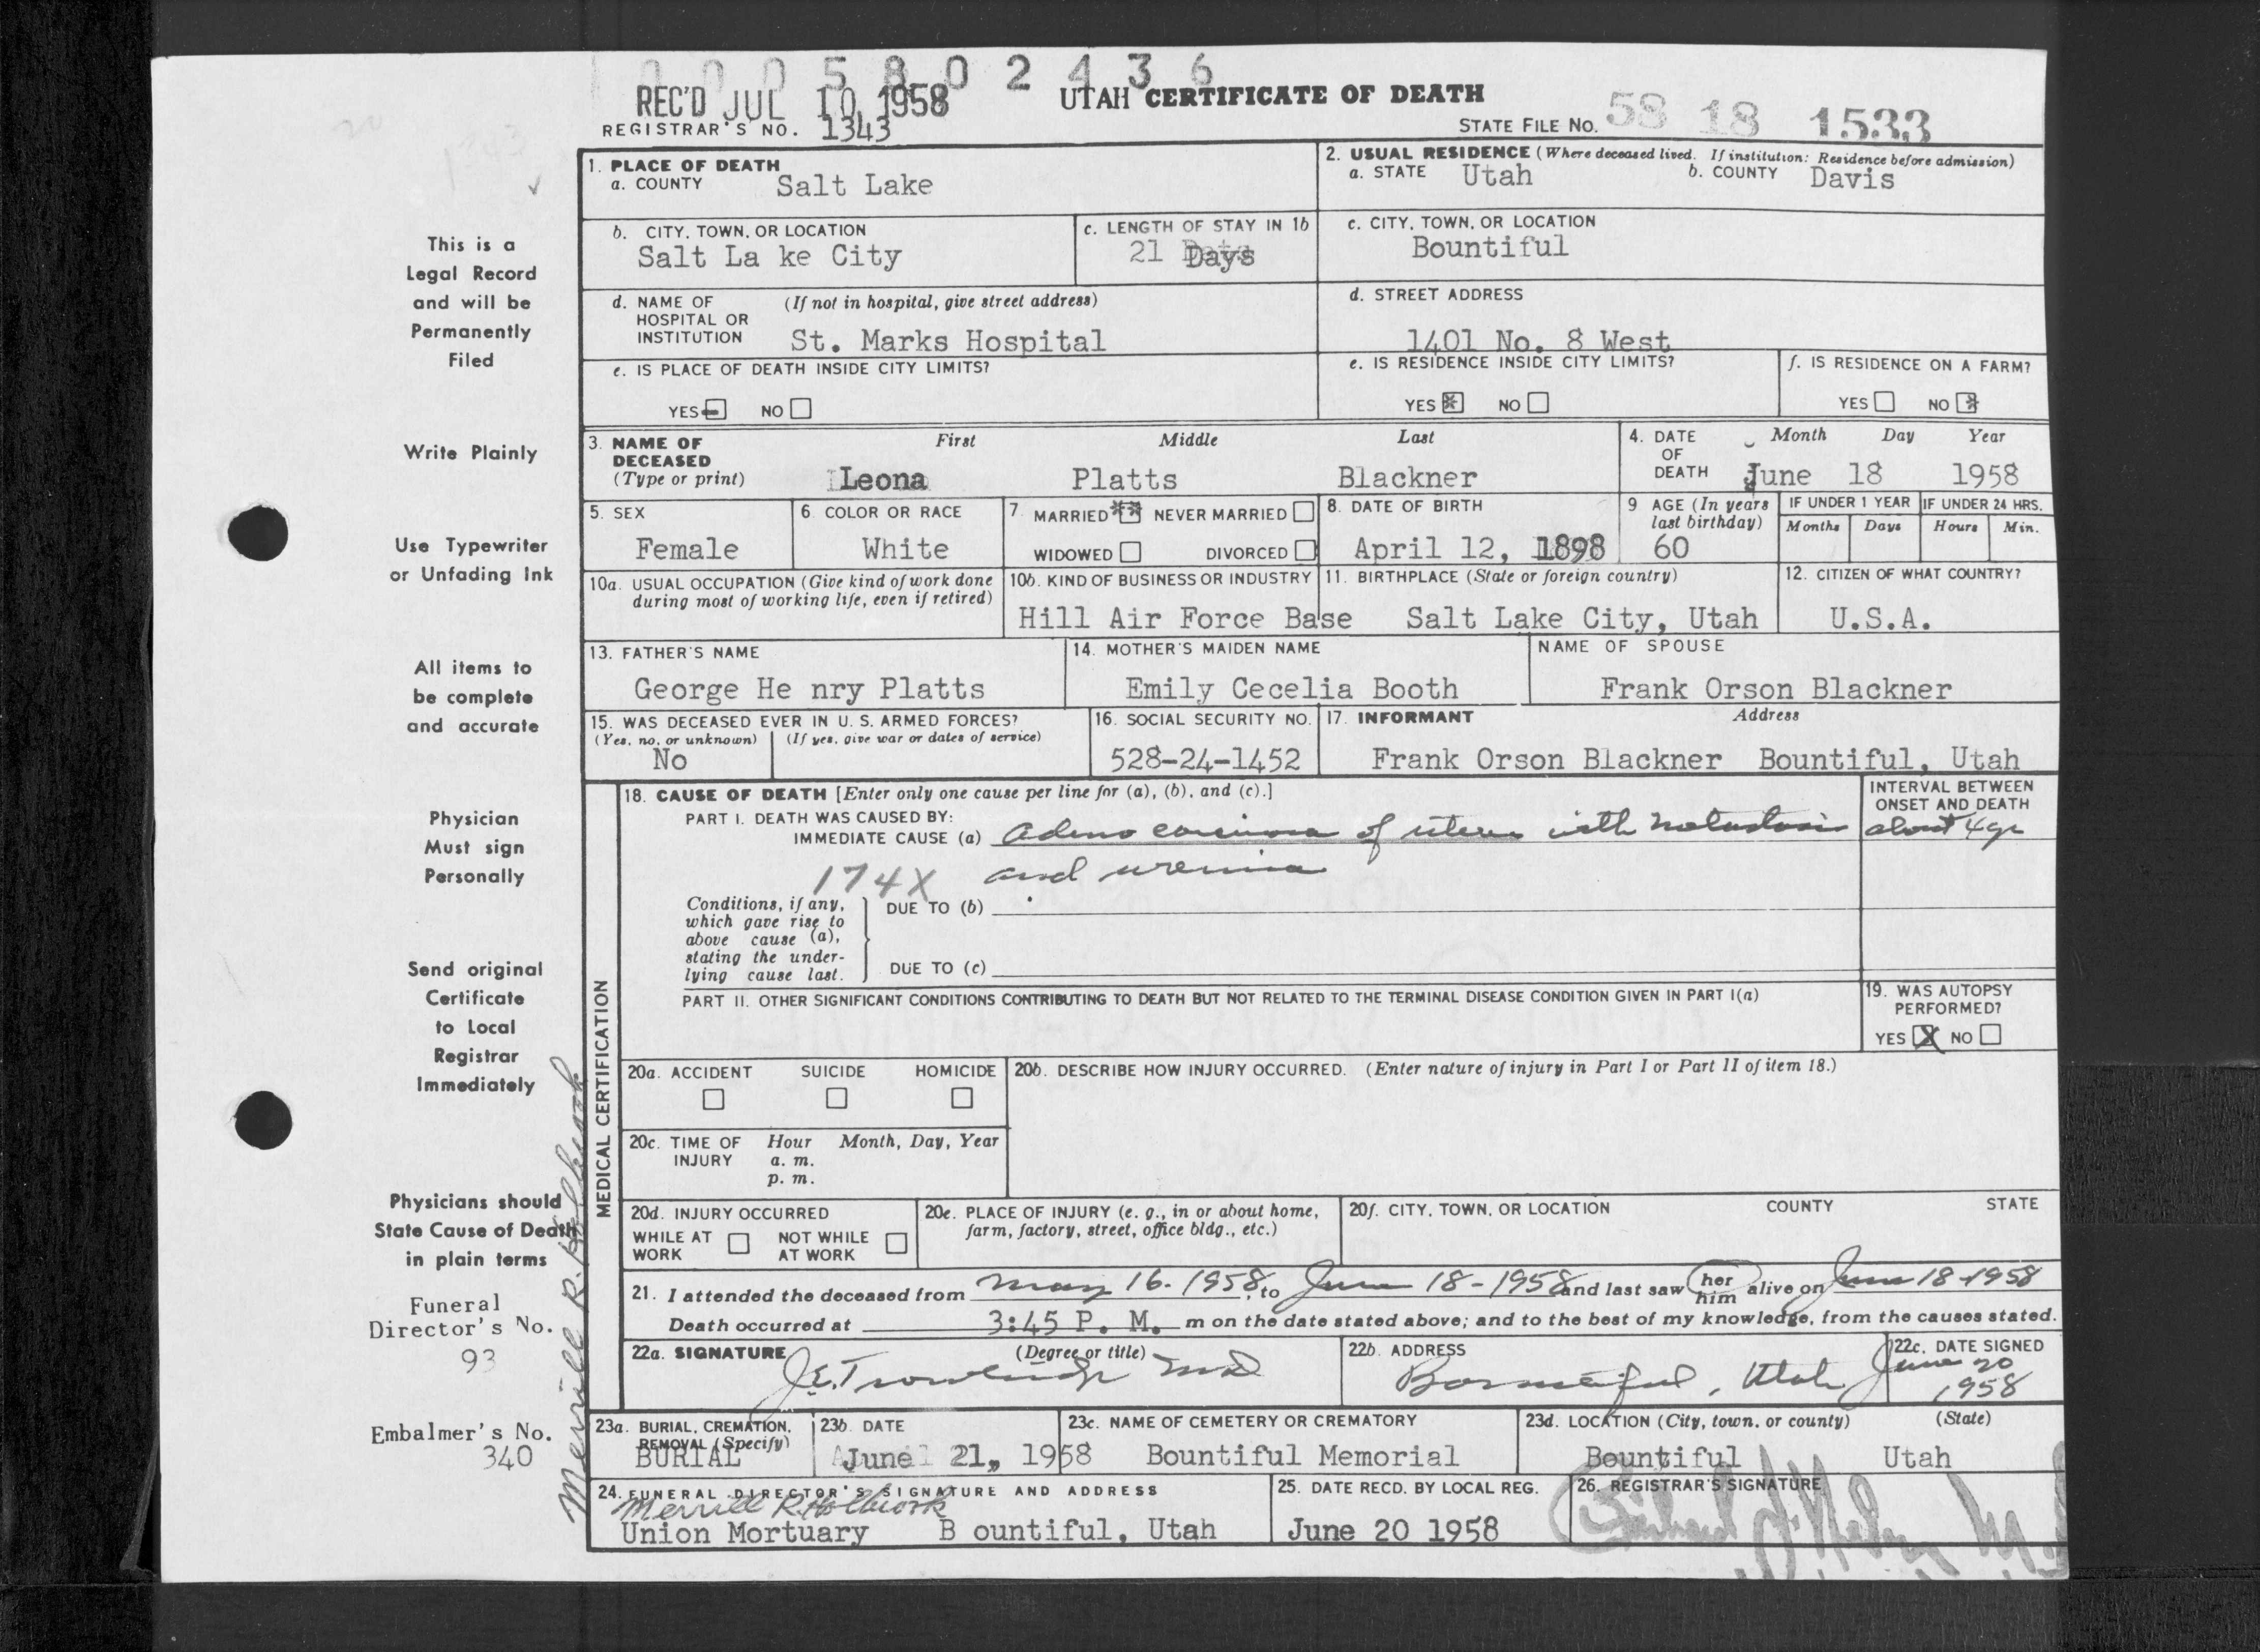 0 0 0 5 8 0 2 4 3 6
REC'D JUL 10 1958
UTAH CERTIFICATE OF DEATH
REGISTRAR'S NO. 1343
STATE FILE NO. 58 18 1533
This is a
Legal Record
and will be
Permanently
Filed
Write Plainly
Use Typewriter
or Unfading Ink
All items to
be complete
and accurate
Physician
Must sign
Personally
Send original
Certificate
to Local
Registrar
Immediately
Physicians should
State Cause of Death
in plain terms
Funeral
Director's No.
93
Embalmer's No.
340
Merrill R. Holbrook
1. PLACE OF DEATH
a. COUNTY Salt Lake
2. USUAL RESIDENCE (Where deceased lived. If institution: Residence before admission)
a. STATE Utah b. COUNTY Davis
b. CITY, TOWN, OR LOCATION
Salt La ke City
c. LENGTH OF STAY IN 1b
21 Days
c. CITY, TOWN, OR LOCATION
Bountiful
d. NAME OF (If not in hospital, give street address)
HOSPITAL OR
INSTITUTION St. Marks Hospital
d. STREET ADDRESS
1401 No. 8 West
e. IS PLACE OF DEATH INSIDE CITY LIMITS?
YES NO
e. IS RESIDENCE INSIDE CITY LIMITS?
YES NO
f. IS RESIDENCE ON A FARM?
YES NO
3. NAME OF First Middle Last
DECEASED
(Type or print) Leona Platts Blackner
4. DATE Month Day Year
OF
DEATH June 18 1958
5. SEX
Female
6. COLOR OR RACE
White
7. MARRIED NEVER MARRIED
WIDOWED DIVORCED
8. DATE OF BIRTH
April 12, 1898
9 AGE (In years
last birthday)
60
IF UNDER 1 YEAR
Months Days
IF UNDER 24 HRS.
Hours Min.
10a. USUAL OCCUPATION (Give kind of work done
during most of working life, even if retired)
10b. KIND OF BUSINESS OR INDUSTRY
Hill Air Force Base
11. BIRTHPLACE (State or foreign country)
Salt Lake City, Utah
12. CITIZEN OF WHAT COUNTRY?
U.S.A.
13. FATHER'S NAME
George He nry Platts
14. MOTHER'S MAIDEN NAME
Emily Cecelia Booth
NAME OF SPOUSE
Frank Orson Blackner
15. WAS DECEASED EVER IN U. S. ARMED FORCES?
(Yes, no, or unknown) (If yes, give war or dates of service)
No
16. SOCIAL SECURITY NO.
528-24-1452
17. INFORMANT Address
Frank Orson Blackner Bountiful, Utah
MEDICAL CERTIFICATION
18. CAUSE OF DEATH [Enter only one cause per line for (a), (b), and (c).]
PART I. DEATH WAS CAUSED BY:
IMMEDIATE CAUSE (a) Adeno carcinoma of uterus with metastasis
174X and uremia
INTERVAL BETWEEN
ONSET AND DEATH
about 4 yr
Conditions, if any,
which gave rise to
above cause (a),
stating the under-
lying cause last.
DUE TO (b)
DUE TO (c)
PART II. OTHER SIGNIFICANT CONDITIONS CONTRIBUTING TO DEATH BUT NOT RELATED TO THE TERMINAL DISEASE CONDITION GIVEN IN PART I(a)
19. WAS AUTOPSY
PERFORMED?
YES X NO
20a. ACCIDENT SUICIDE HOMICIDE
20b. DESCRIBE HOW INJURY OCCURRED. (Enter nature of injury in Part I or Part II of item 18.)
20c. TIME OF Hour Month, Day, Year
INJURY a. m.
p. m.
20d. INJURY OCCURRED
WHILE AT NOT WHILE
WORK AT WORK
20e. PLACE OF INJURY (e. g., in or about home,
farm, factory, street, office bldg., etc.)
20f. CITY, TOWN, OR LOCATION COUNTY STATE
21. I attended the deceased from May 16 - 1958, to June 18 - 1958 and last saw her him alive on June 18 - 1958
Death occurred at 3:45 P. M. m on the date stated above; and to the best of my knowledge, from the causes stated.
22a. SIGNATURE (Degree or title)
J.E. Trowbridge MD
22b. ADDRESS
Bountiful, Utah
22c. DATE SIGNED
June 20
1958
23a. BURIAL, CREMATION,
REMOVAL (Specify)
BURIAL
23b. DATE
June 21, 1958
23c. NAME OF CEMETERY OR CREMATORY
Bountiful Memorial
23d. LOCATION (City, town, or county) (State)
Bountiful Utah
24. FUNERAL DIRECTOR'S SIGNATURE AND ADDRESS
Merrill R. Holbrook
Union Mortuary B ountiful, Utah
25. DATE RECD. BY LOCAL REG.
June 20 1958
26. REGISTRAR'S SIGNATURE